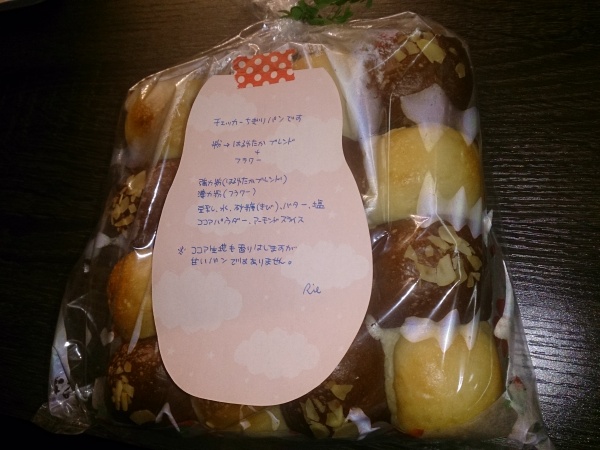 チェッカーちぎりパンです
粉→はるゆたかブレンド
+
フラワー
強力粉(はるゆたかブレンド)
薄力粉(フラワー)
豆乳、水、砂糖(きび)、バター、塩
ココアパウダー、アーモンドスライス
※ ココア生地も香りはしますが
甘いパンではありません。
Rie